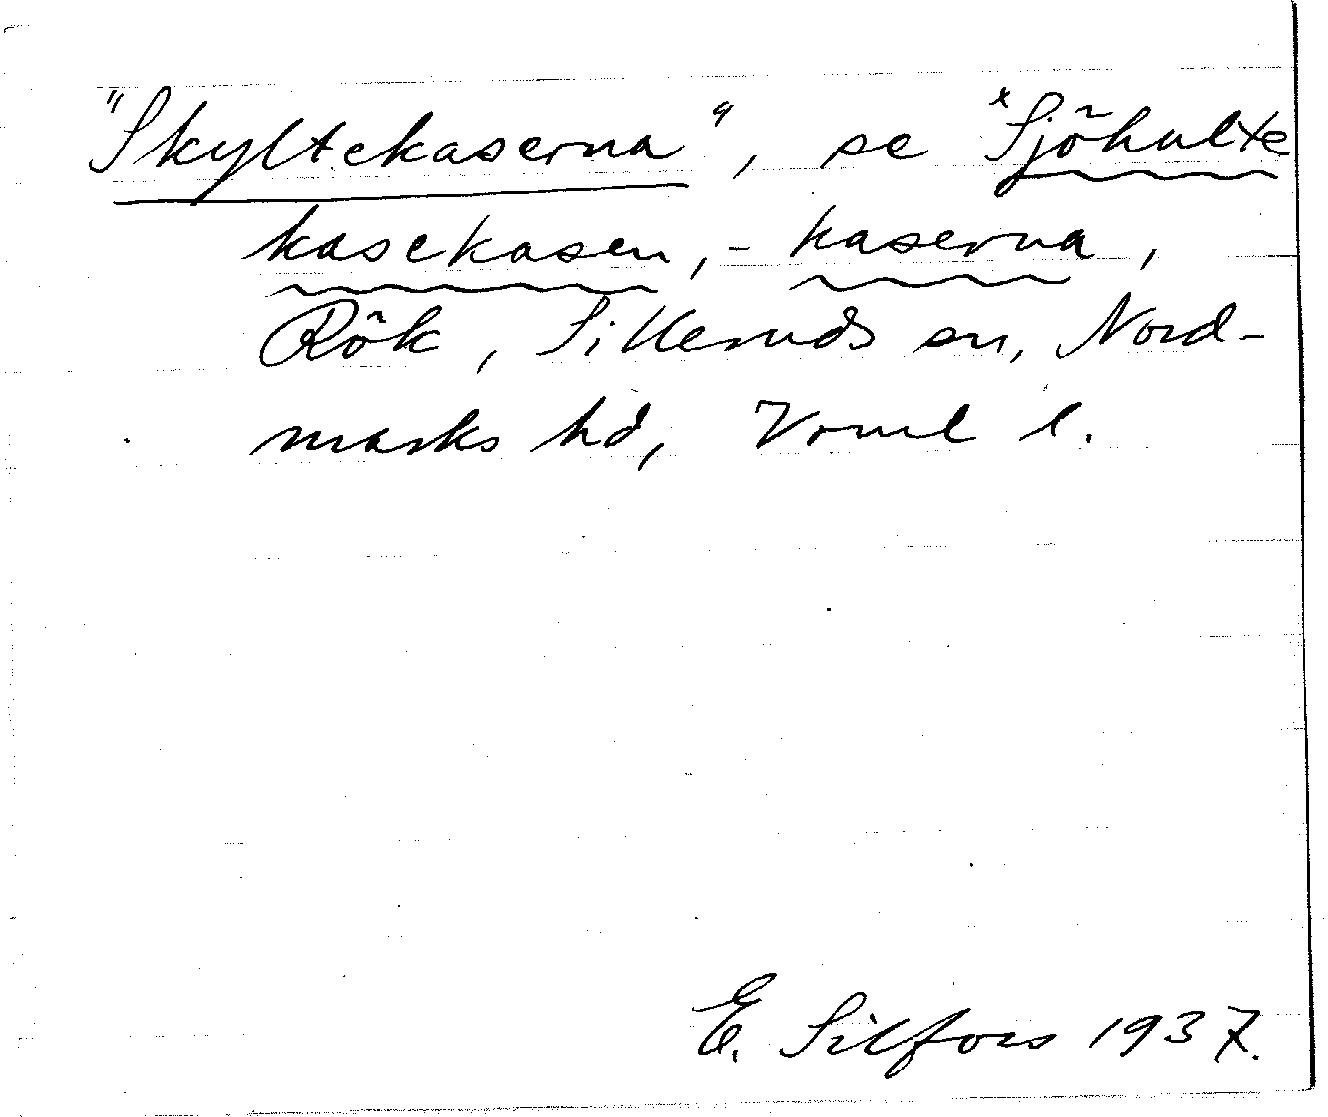 "Skyltekaserna", se *Sjöhulte
kasekasen, -kaserna,
Rök, Silleruds sn, Nord-
marks hd, Vrml l.
E. Silfors 1937.